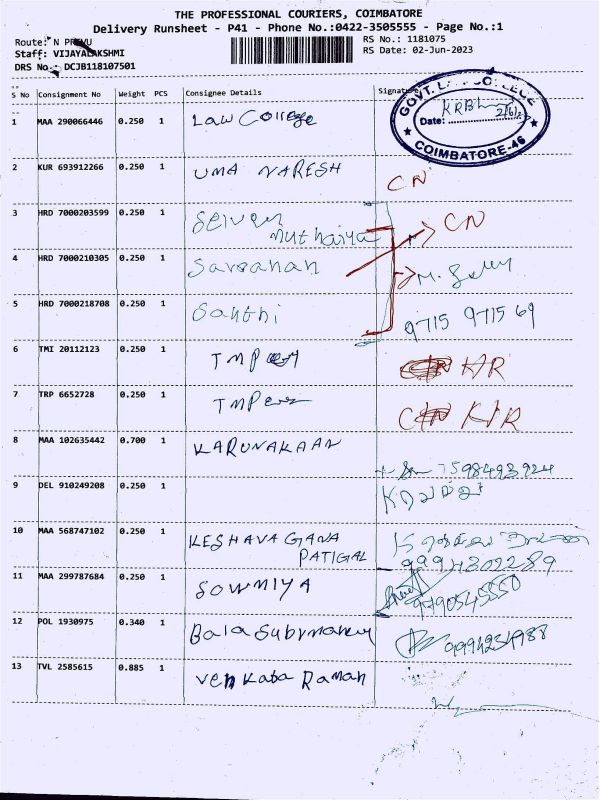 THE PROFESSIONAL COURIERS, COIMBATORE
Delivery Runsheet - P41 - Phone No.:0422-3505555 - Page No.:1
Route: N
RS No.: 1181075
Staff: VIJAYALAKSHMI
RS Date: 02-Jun-2023
DRS No.: DCJB118107501
S No Consignment No Weight PCS Consignee Details Signature
GOVT. LAW COLLEGE
Date:
COIMBATORE-46
1 MAA 290066446 0.250 1 Law College
2 KUR 693912266 0.250 1 UMA NARESH CN
3 HRD 7000203599 0.250 1 Selven CN
Muthaiya
4 HRD 7000210305 0.250 1 Saravanan
5 HRD 7000218708 0.250 1 Santhi 9715 9715 69
6 TMI 20112123 0.250 1
7 TRP 6652728 0.250 1
8 MAA 102635442 0.700 1 KARUNAKAAN
7598493924
9 DEL 910249208 0.250 1
10 MAA 568747102 0.250 1 KESHAVA GANA
PATIGAL 9994302289
11 MAA 299787684 0.250 1 SOWMIYA 9790545550
12 POL 1930975 0.340 1 Bala 9994234988
13 TVL 2585615 0.885 1 Venkata Raman